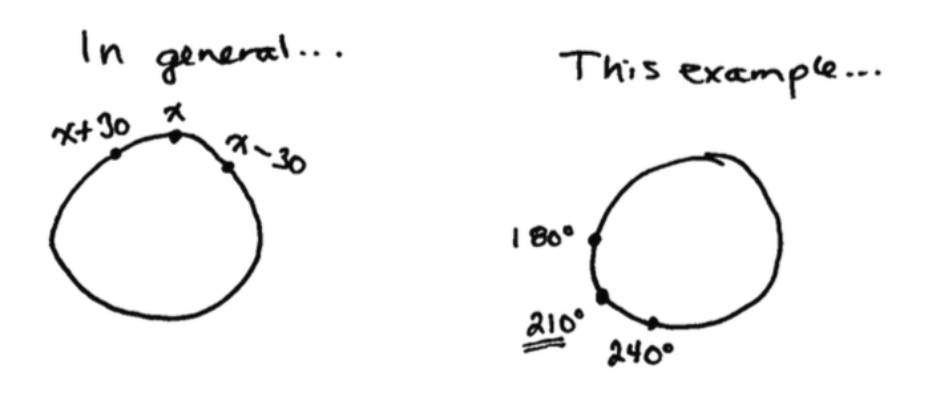 In general...
x+30
x
x-30
This example...
180°
210°
240°